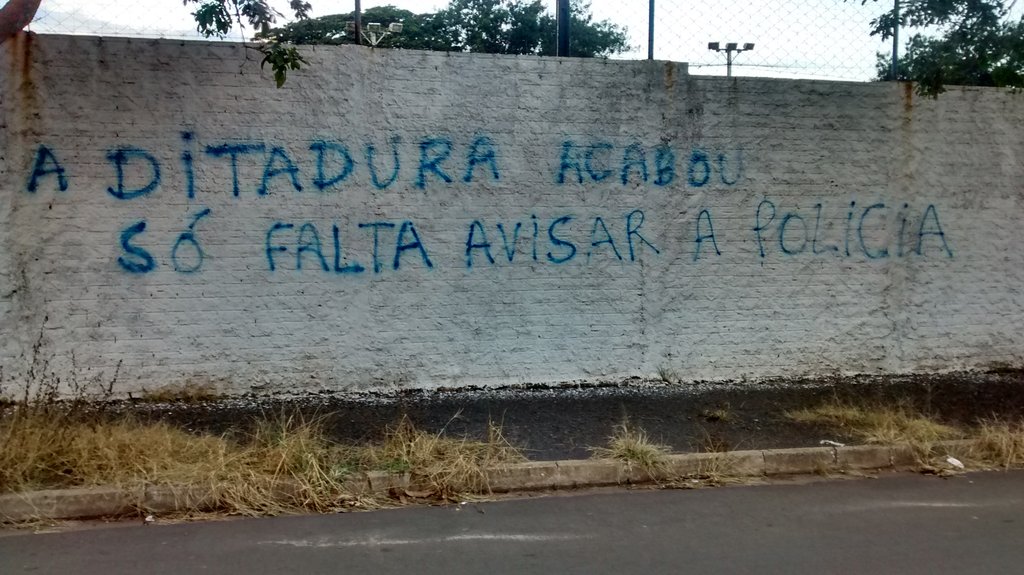 A DiTADURA ACABOU
SÓ FALTA AViSAR A POLiCiA